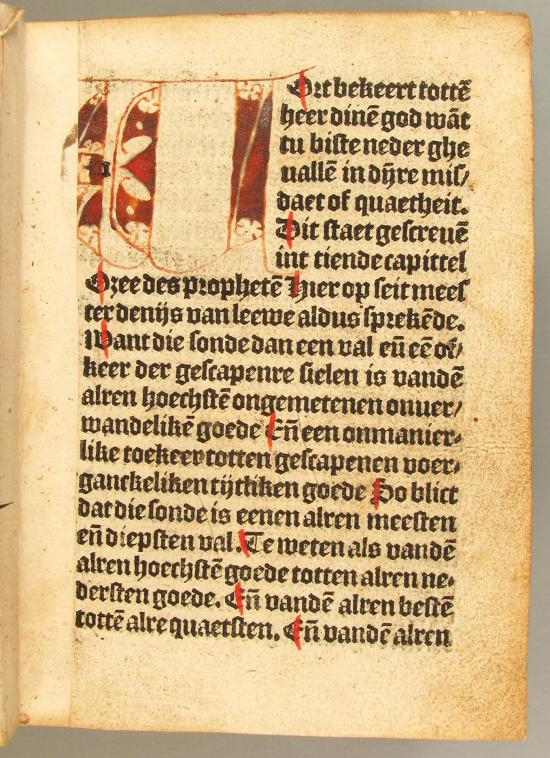 Ort bekeert tottē
heer dinē god wāt
tu biste neder ghe
uallē in dijre mis/
daet of quaetheit.
Dit staet gescreuē
int tiende capittel
Oree des prophetē Hier op seit mees
ter denijs van leewe aldus sprekēde.
Want die sonde dan een val eñ eē of/
keer der gescapenre sielen is vandē
alren hoechstē ongemetenen onuer/
wandelikē goede Eñ een onmanier-
like toekeer totten gescapenen voer-
ganckeliken tijtliken goede So blict
dat die sonde is eenen alren meesten
eñ diepsten val. Te weten als vandē
alren hoechstē goede totten alren ne-
dersten goede. Eñ vandē alren bestē
tottē alre quaetsten. Eñ vandē alren